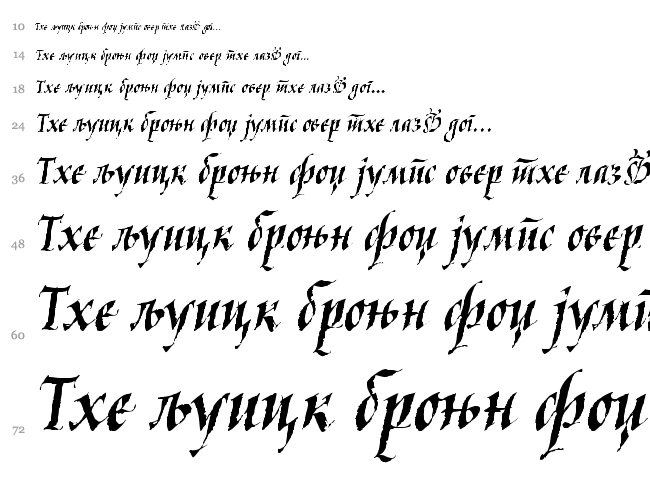 10 Тхе љуицк броњн фоџ јумпс овер тхе дог...
14 Тхе љуицк броњн фоџ јумпс овер тхе дог...
18 Тхе љуицк броњн фоџ јумпс овер тхе дог...
24 Тхе љуицк броњн фоџ јумпс овер тхе дог...
36 Тхе љуицк броњн фоџ јумпс овер тхе
48 Тхе љуицк броњн фоџ јумпс овер
60 Тхе љуицк броњн фоџ
72 Тхе љуицк броњн фоџ